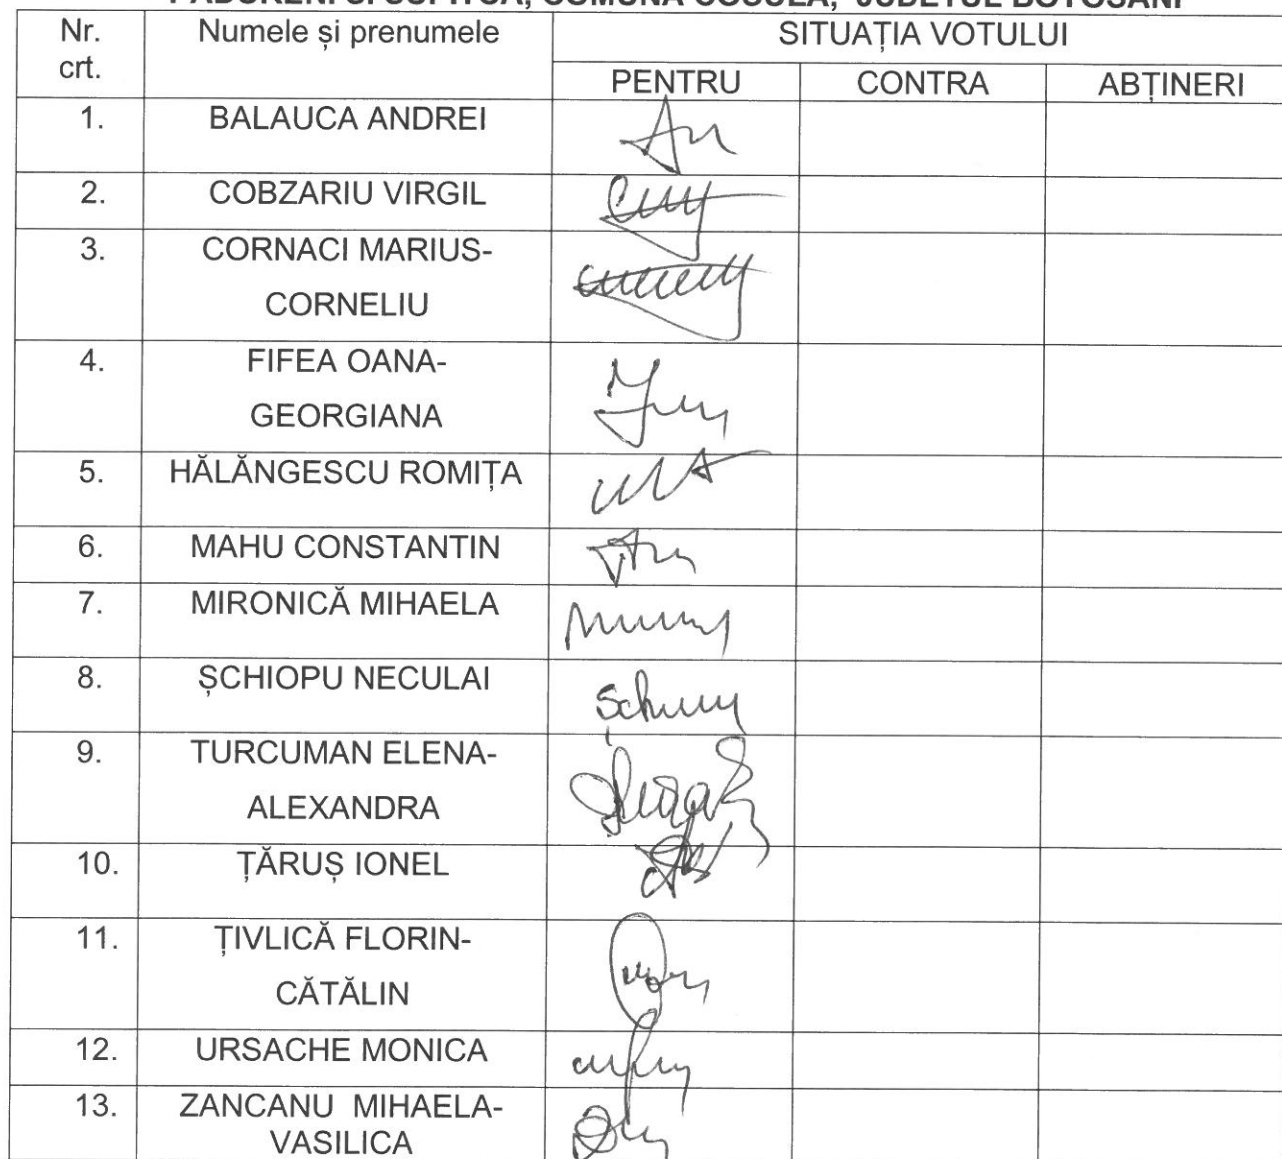 PĂDURENI ȘI ȘUPITCA, COMUNA COȘULA, JUDEȚUL BOTOȘANI
Nr. crt.
Numele și prenumele
SITUAȚIA VOTULUI
PENTRU CONTRA ABȚINERI
1. BALAUCA ANDREI
2. COBZARIU VIRGIL
3. CORNACI MARIUS-
CORNELIU
4. FIFEA OANA-
GEORGIANA
5. HĂLĂNGESCU ROMIȚA
6. MAHU CONSTANTIN
7. MIRONICĂ MIHAELA
8. ȘCHIOPU NECULAI
9. TURCUMAN ELENA-
ALEXANDRA
10. ȚĂRUȘ IONEL
11. ȚIVLICĂ FLORIN-
CĂTĂLIN
12. URSACHE MONICA
13. ZANCANU MIHAELA-
VASILICA